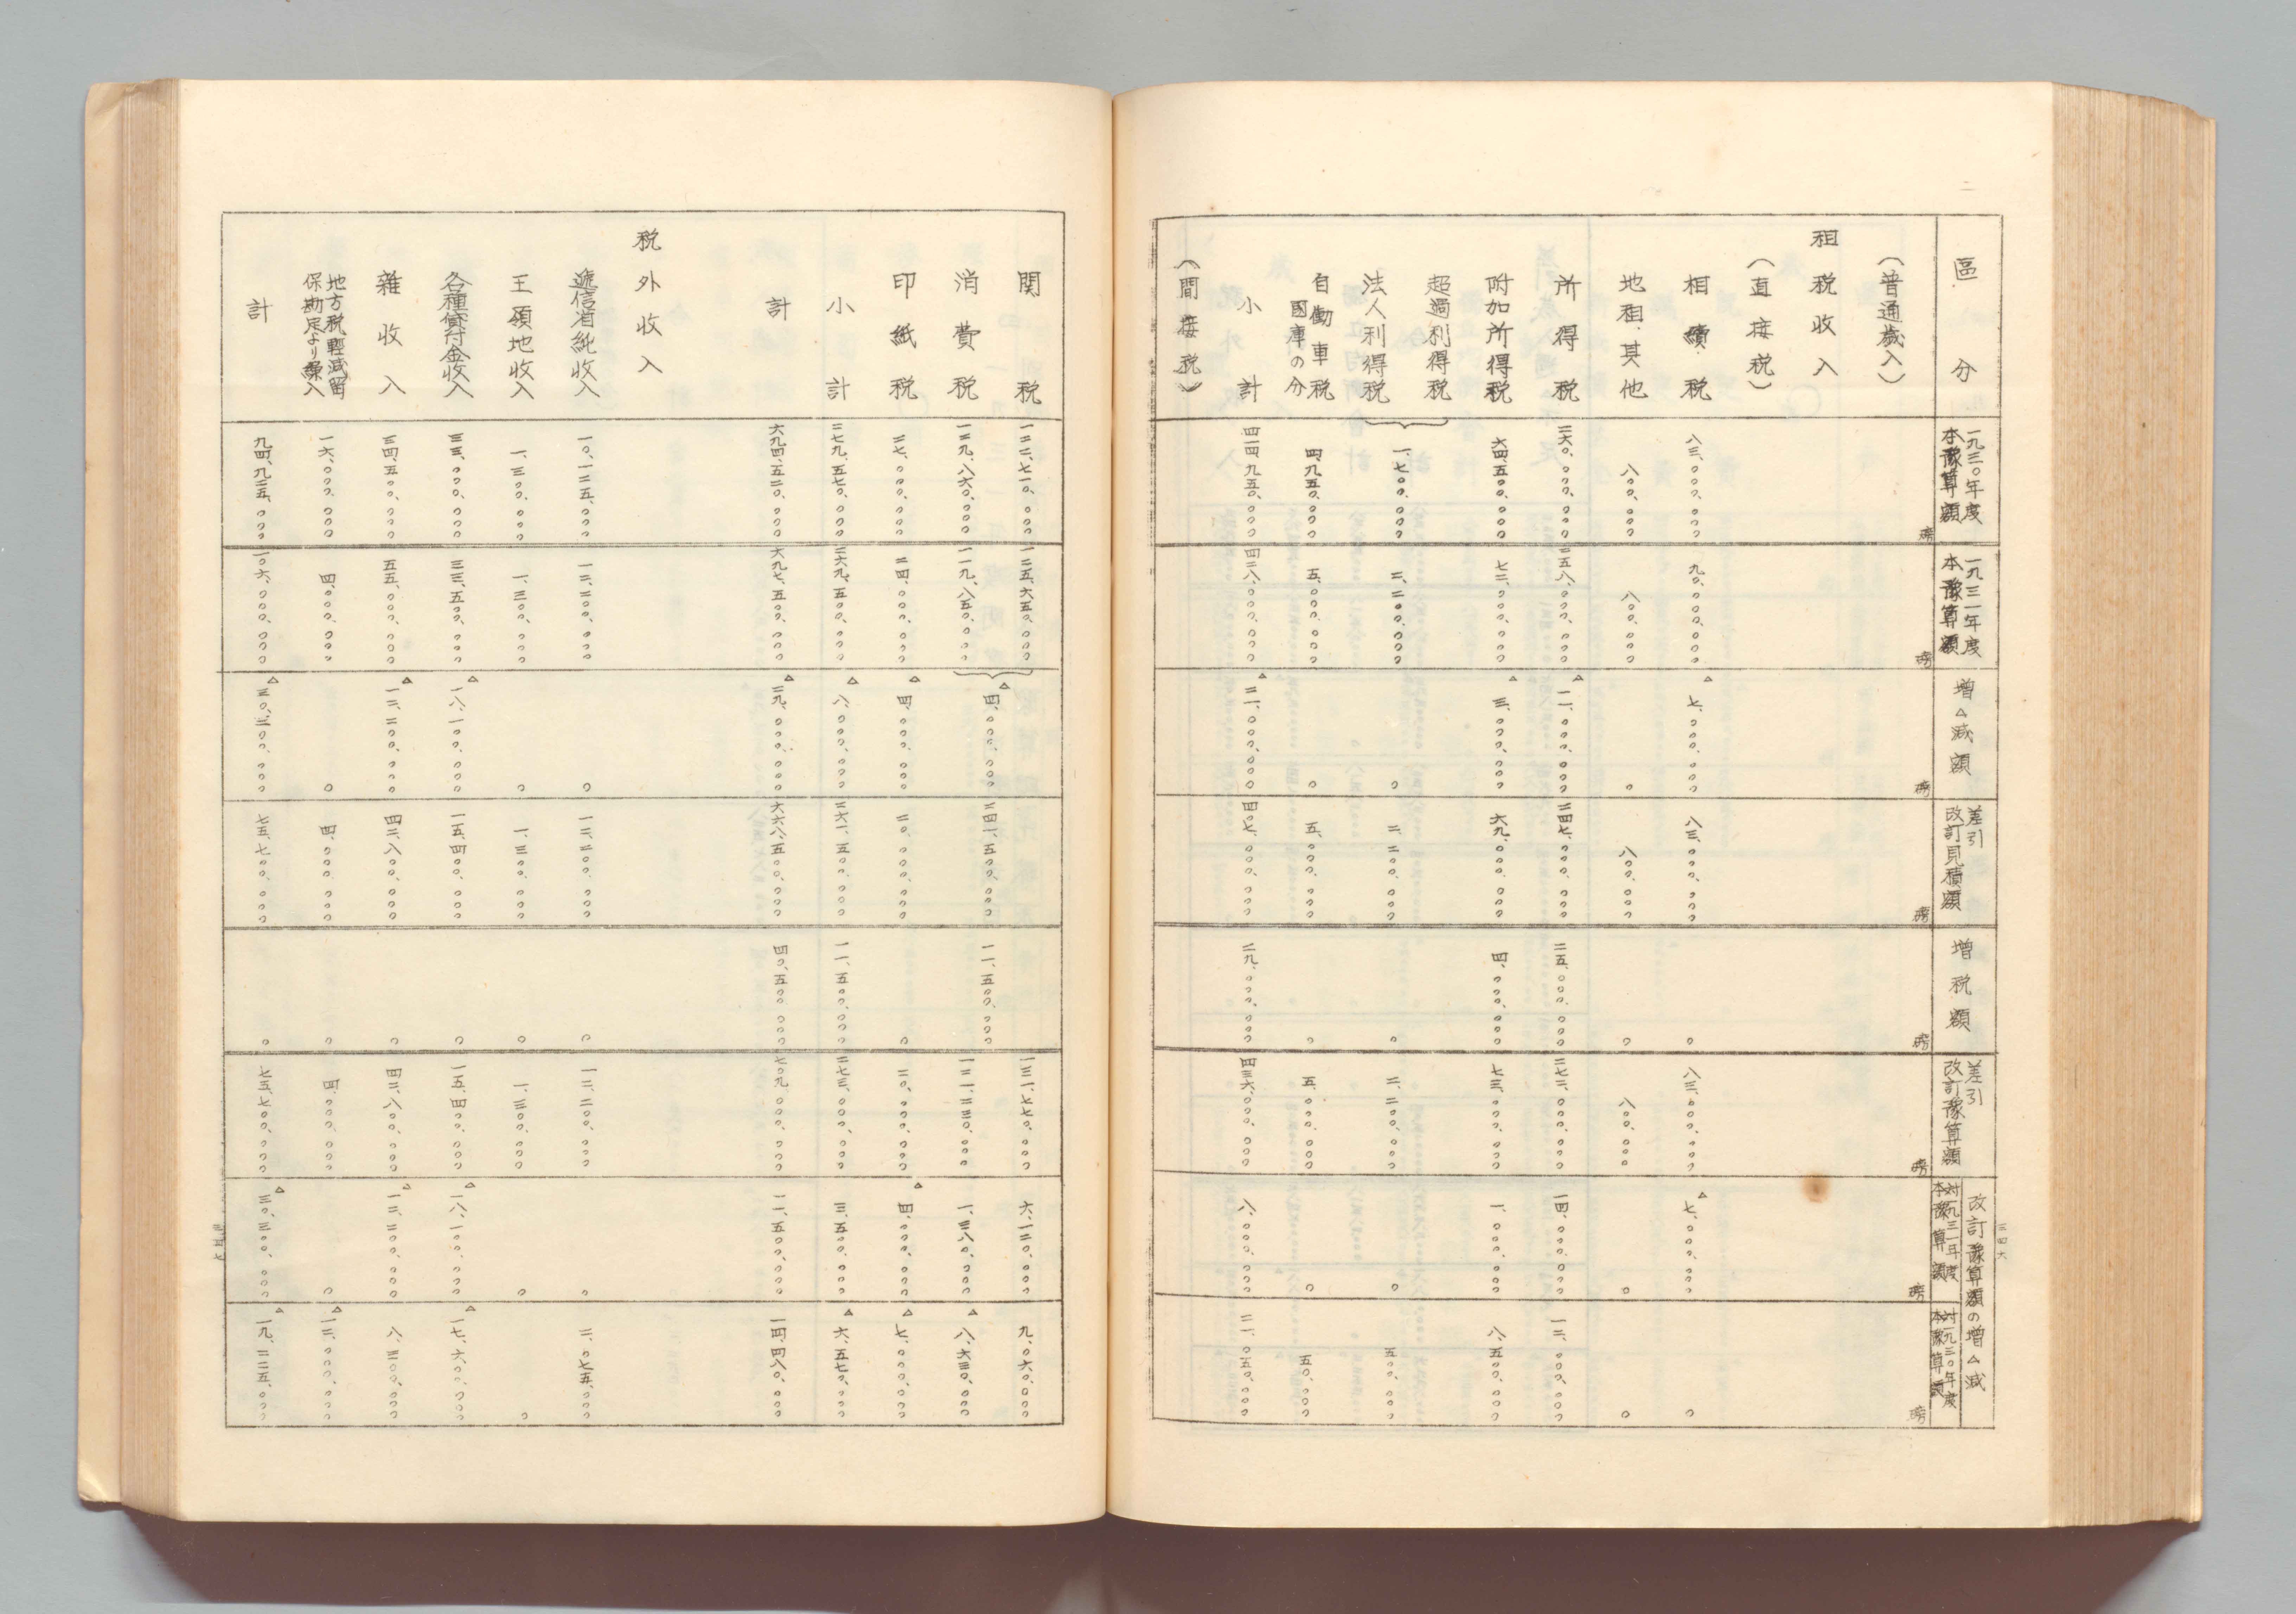 三四六
區分 一九三〇年度本豫算額 磅 一九三一年度本豫算額 磅 増△減額 磅 差引改訂見積額 磅 増税額 磅 差引改訂豫算額 磅 改訂豫算額の増△減 対一九三一年度本豫算額 磅 対一九三〇年度本豫算額 磅
(普通歳入)
租税收入
(直接税)
相續税 八三、〇〇〇、〇〇〇 九〇、〇〇〇、〇〇〇 △七、〇〇〇、〇〇〇 八三、〇〇〇、〇〇〇 〇 八三、〇〇〇、〇〇〇 △七、〇〇〇、〇〇〇 〇
地租其他 八〇〇、〇〇〇 八〇〇、〇〇〇 〇 八〇〇、〇〇〇 〇 八〇〇、〇〇〇 〇 〇
所得税 二六〇、〇〇〇、〇〇〇 二五八、〇〇〇、〇〇〇 △一一、〇〇〇、〇〇〇 二四七、〇〇〇、〇〇〇 二五、〇〇〇、〇〇〇 二七二、〇〇〇、〇〇〇 一四、〇〇〇、〇〇〇 一二、〇〇〇、〇〇〇
附加所得税 六四、五〇〇、〇〇〇 七二、〇〇〇、〇〇〇 △三、〇〇〇、〇〇〇 六九、〇〇〇、〇〇〇 四、〇〇〇、〇〇〇 七三、〇〇〇、〇〇〇 一、〇〇〇、〇〇〇 八、五〇〇、〇〇〇
超過利得税
法人利得税 一、七〇〇、〇〇〇 二、二〇〇、〇〇〇 〇 二、二〇〇、〇〇〇 〇 二、二〇〇、〇〇〇 〇 五〇〇、〇〇〇
自動車税國庫の分 四、九五〇、〇〇〇 五、〇〇〇、〇〇〇 〇 五、〇〇〇、〇〇〇 〇 五、〇〇〇、〇〇〇 〇 五〇、〇〇〇
小計 四一四、九五〇、〇〇〇 四二八、〇〇〇、〇〇〇 △二一、〇〇〇、〇〇〇 四〇七、〇〇〇、〇〇〇 二九、〇〇〇、〇〇〇 四三六、〇〇〇、〇〇〇 八、〇〇〇、〇〇〇 二一、〇五〇、〇〇〇
(間接税)
関税 一二二、七一〇、〇〇〇 一二五、六五〇、〇〇〇 △四、〇〇〇、〇〇〇 二四一、五〇〇、〇〇〇 一一、五〇〇、〇〇〇 一三一、七七〇、〇〇〇 六、一二〇、〇〇〇 九、〇六〇、〇〇〇
消費税 一二九、八六〇、〇〇〇 一一九、八五〇、〇〇〇 一二一、二三〇、〇〇〇 一、三八〇、〇〇〇 △八、六三〇、〇〇〇
印紙税 二七、〇〇〇、〇〇〇 二四、〇〇〇、〇〇〇 △四、〇〇〇、〇〇〇 二〇、〇〇〇、〇〇〇 〇 二〇、〇〇〇、〇〇〇 △四、〇〇〇、〇〇〇 △七、〇〇〇、〇〇〇
小計 二七九、五七〇、〇〇〇 二六九、五〇〇、〇〇〇 △八、〇〇〇、〇〇〇 二六一、五〇〇、〇〇〇 一一、五〇〇、〇〇〇 二七三、〇〇〇、〇〇〇 三、五〇〇、〇〇〇 △六、五七〇、〇〇〇
計 六九四、五二〇、〇〇〇 六九七、五〇〇、〇〇〇 △二九、〇〇〇、〇〇〇 六六八、五〇〇、〇〇〇 四〇、五〇〇、〇〇〇 七〇九、〇〇〇、〇〇〇 一一、五〇〇、〇〇〇 一四、四八〇、〇〇〇
税外收入
逓信省純收入 一〇、一二五、〇〇〇 一二、二〇〇、〇〇〇 〇 一二、二〇〇、〇〇〇 〇 一二、二〇〇、〇〇〇 〇 二、〇七五、〇〇〇
王領地收入 一、三〇〇、〇〇〇 一、三〇〇、〇〇〇 〇 一、三〇〇、〇〇〇 〇 一、三〇〇、〇〇〇 〇 〇
各種貸付金收入 三三、〇〇〇、〇〇〇 三三、五〇〇、〇〇〇 △一八、一〇〇、〇〇〇 一五、四〇〇、〇〇〇 〇 一五、四〇〇、〇〇〇 △一八、一〇〇、〇〇〇 △一七、六〇〇、〇〇〇
雜收入 三四、五〇〇、〇〇〇 五五、〇〇〇、〇〇〇 △一二、二〇〇、〇〇〇 四二、八〇〇、〇〇〇 〇 四二、八〇〇、〇〇〇 △一二、二〇〇、〇〇〇 八、三〇〇、〇〇〇
地方税輕減留保勘定より繰入 一六、〇〇〇、〇〇〇 四、〇〇〇、〇〇〇 〇 四、〇〇〇、〇〇〇 〇 四、〇〇〇、〇〇〇 〇 △一二、〇〇〇、〇〇〇
計 九四、九二五、〇〇〇 一〇六、〇〇〇、〇〇〇 △三〇、三〇〇、〇〇〇 七五、七〇〇、〇〇〇 〇 七五、七〇〇、〇〇〇 △三〇、三〇〇、〇〇〇 △一九、二二五、〇〇〇